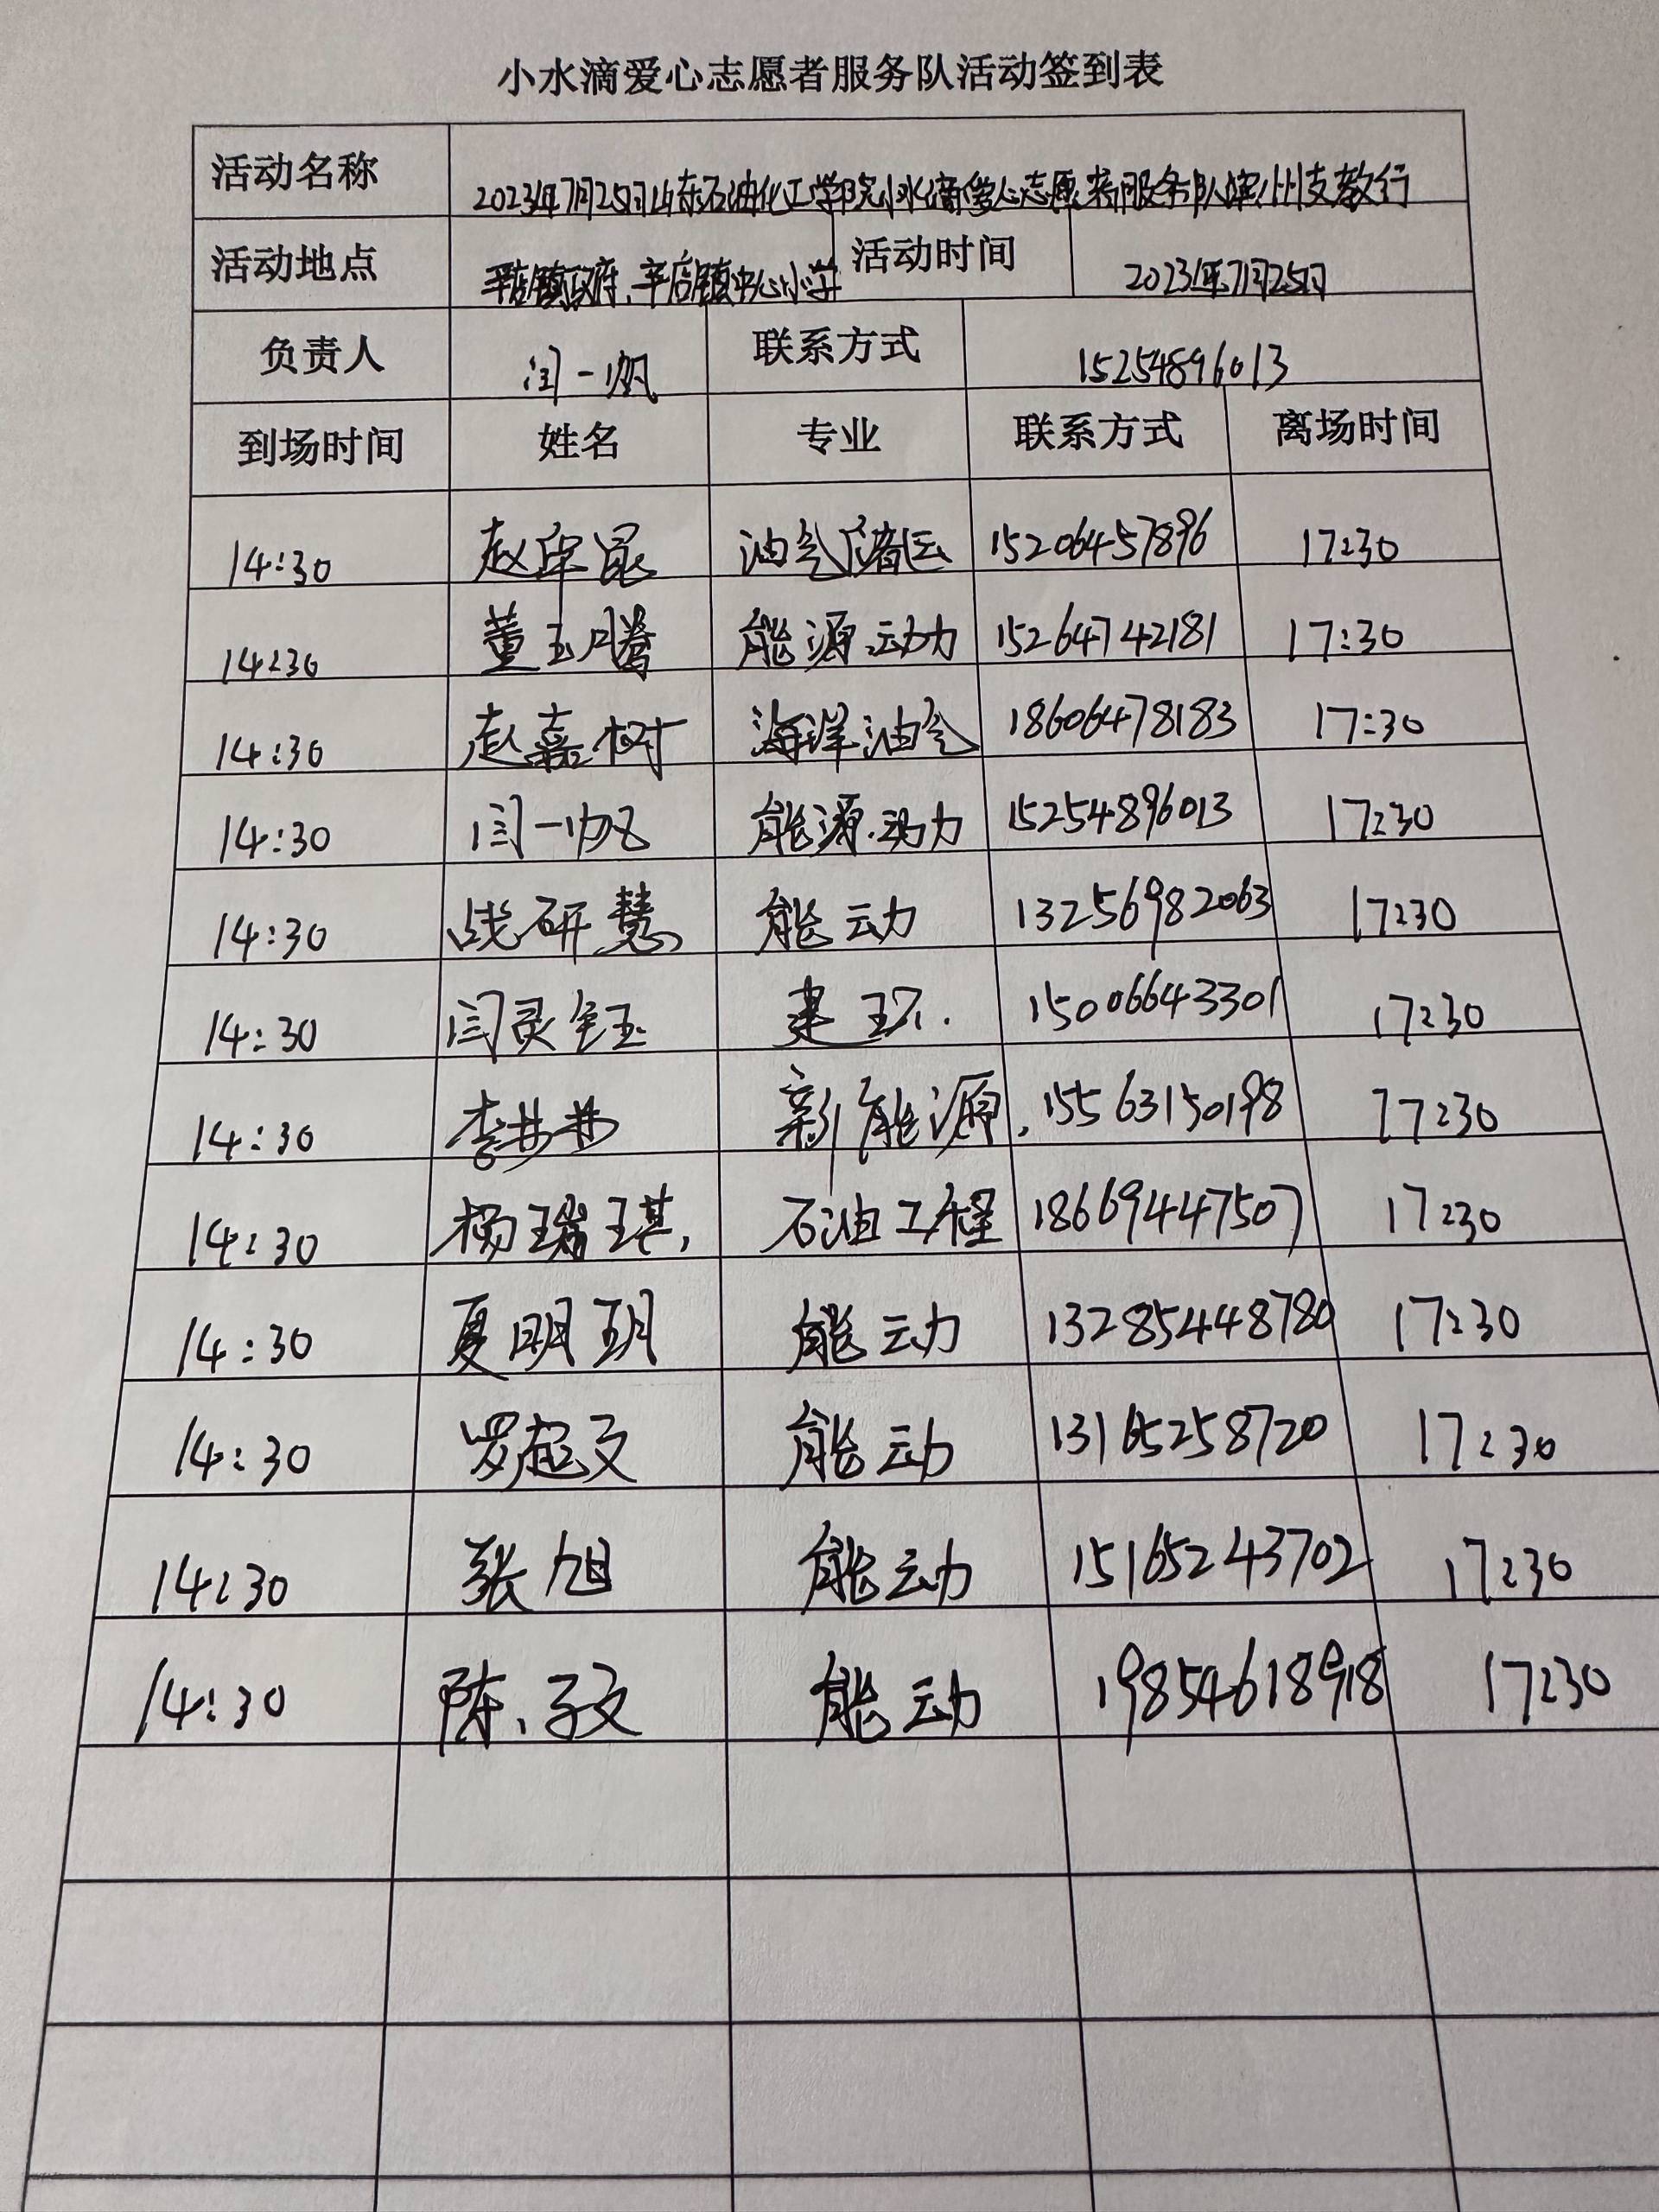 小水滴爱心志愿者服务队活动签到表
活动名称 2023年7月25日山东石油化工学院小水滴爱心志愿者服务队滨州支教行
活动地点 辛店镇政府、辛店镇中心小学 活动时间 2023年7月25日
负责人 闫一帆 联系方式 15254896013
到场时间 姓名 专业 联系方式 离场时间
14:30 赵 昆 油气储运 15206457896 17:30
14:30 董玉腾 能源动力 15264742181 17:30
14:30 赵嘉树 海洋油气 18606478183 17:30
14:30 闫一帆 能源动力 15254896013 17:30
14:30 战研慧 能动 13256982063 17:30
14:30 闫灵钰 建环. 15006643301 17:30
14:30 李苒苒 新能源. 15563150198 17:30
14:30 杨瑞琪, 石油工程 18669447507 17:30
14:30 夏明玥 能动 13285448780 17:30
14:30 罗起文 能动 13165258720 17:30
14:30 张旭 能动 15165243702 17:30
14:30 陈子文 能动 19854618918 17:30